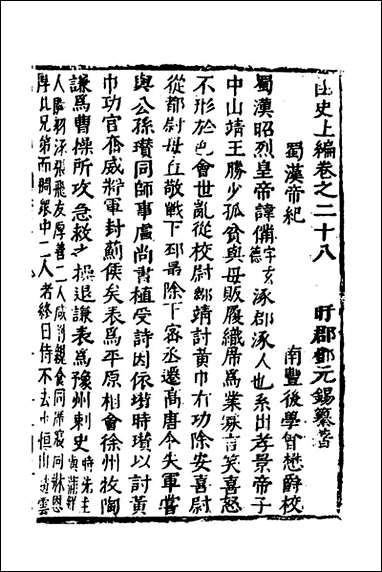 函史上編卷之二十八 盱郡鄧元錫纂著
蜀漢帝紀 南豐後學曾懋爵校
蜀漢昭烈皇帝諱備字玄德涿郡涿人也系出孝景帝子
中山靖王勝少孤貧與母販履織席爲業寡言笑喜怒
不形於色會世亂從校尉鄒靖討黃巾有功除安喜尉
從都尉毋丘敬戰下邳最除下密丞遷高唐令失軍嘗
與公孫瓚同師事盧尚書植受詩因依瓚時瓚以討黃
巾功官奮威將軍封薊侯矣表爲平原相會徐州牧陶
謙爲曹操所攻急救之操退謙表爲豫州刺史時先主
人關羽涿張飛友厚善二人咸親食同席寢同牀恩
厚比兄弟而稠衆中二人者終日侍不去山趙雲